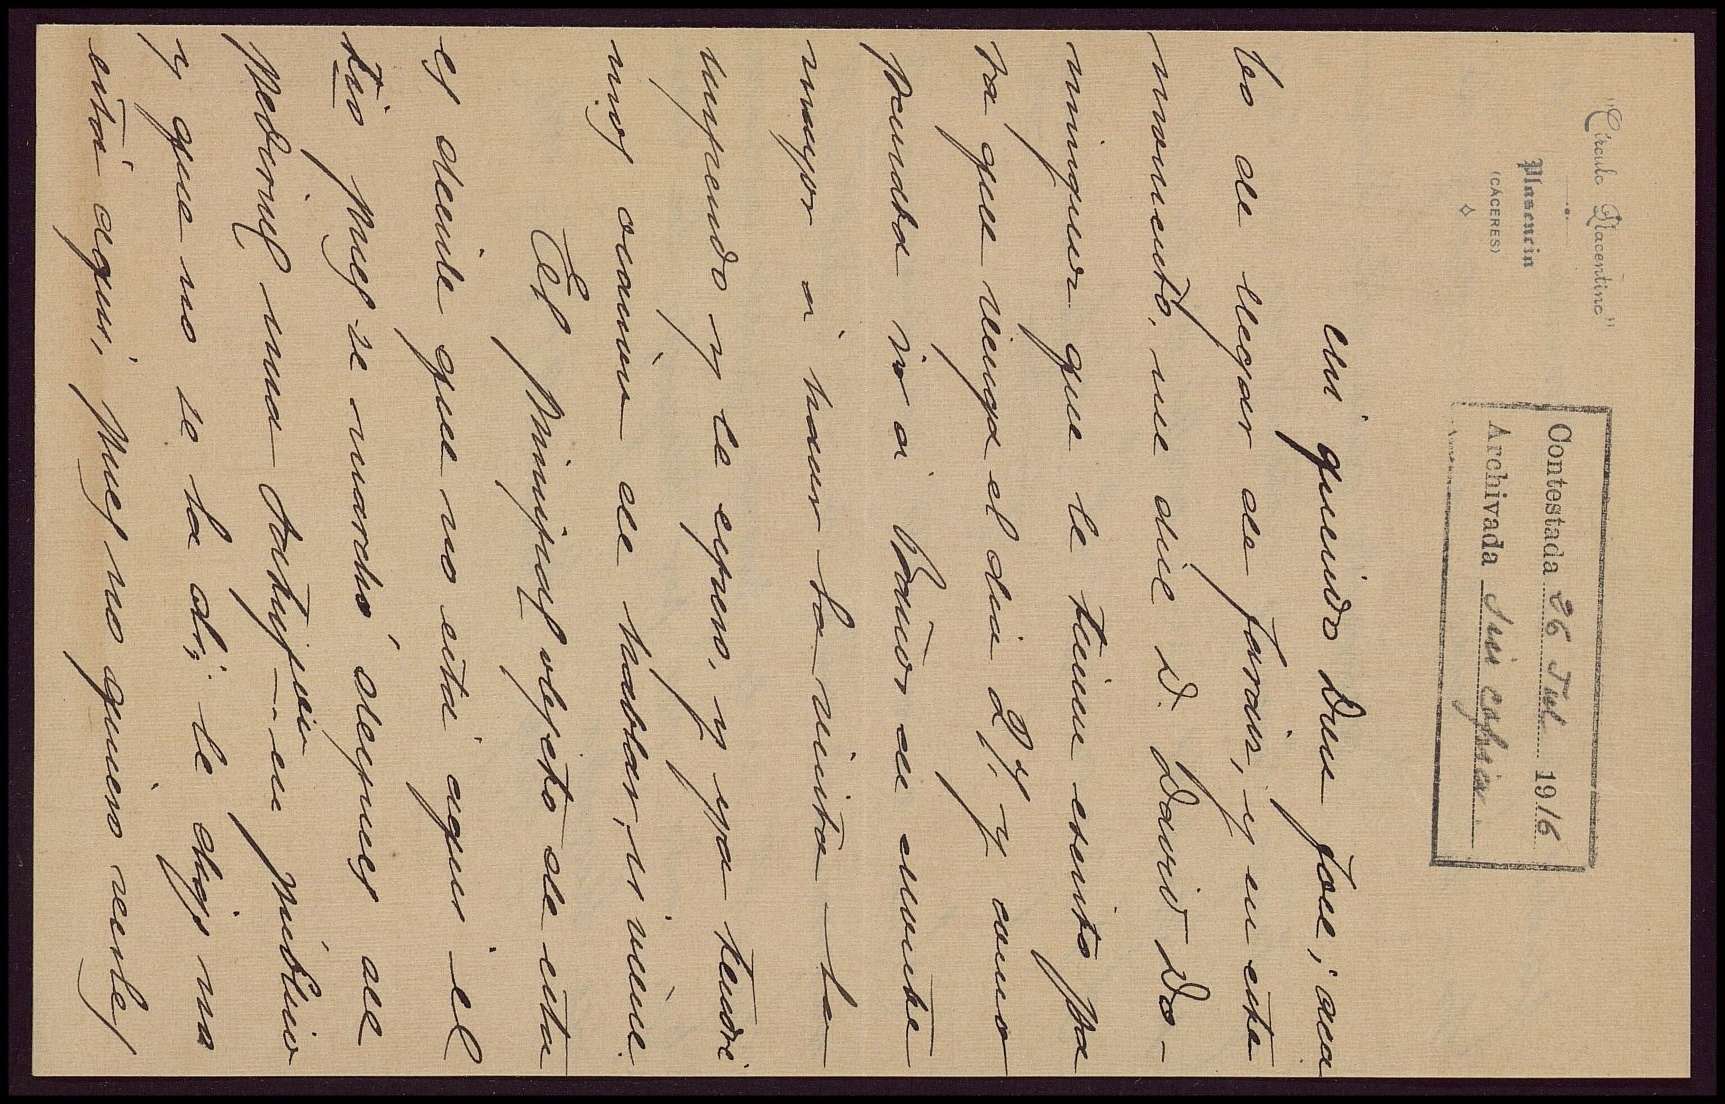 "Círculo Placentino"
Plasencia
(CÁCERES)
Contestada 26 Jul 1916
Archivada Sin copia
Mi querido Don José; aca
bo de llegar de Jaraiz, y en este
momento, me dice D. David Do-
minguez que le tiene escrito pa
ra que venga el dia 27, y como
piensa ir á Baños se suvite
mayor á hacer la visita la
suspendo y le espero, y ya tendre
mos ocasión de hablar, si viene.
El principal objeto de esta
es decirle que no está aqui el
tio pues se marchó despues de
pedirme una satisfacción en público
y que no se la di; le digo no
está aqui, pues no quiero verle,